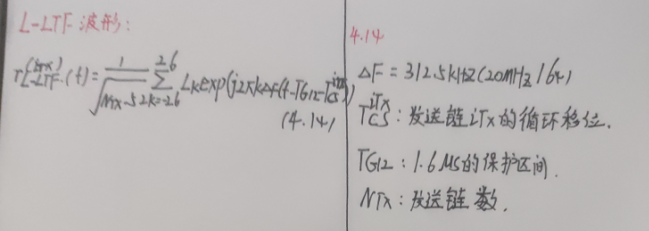 L-LTF 波形:
r_{L-LTF}^{(iTx)}(t) = \frac{1}{\sqrt{N_{Tx}·52}} \sum_{k=-26}^{26} L_k exp(j2πkΔF(t-T_{GI2}-T_{CS}^{iTx}))
(4.14)
4.14
ΔF = 312.5kHz (20MHz/64)
T_{CS}^{iTx}: 发送链iTx的循环移位.
TGI2: 1.6 μs的保护区间.
NTx: 发送链数.